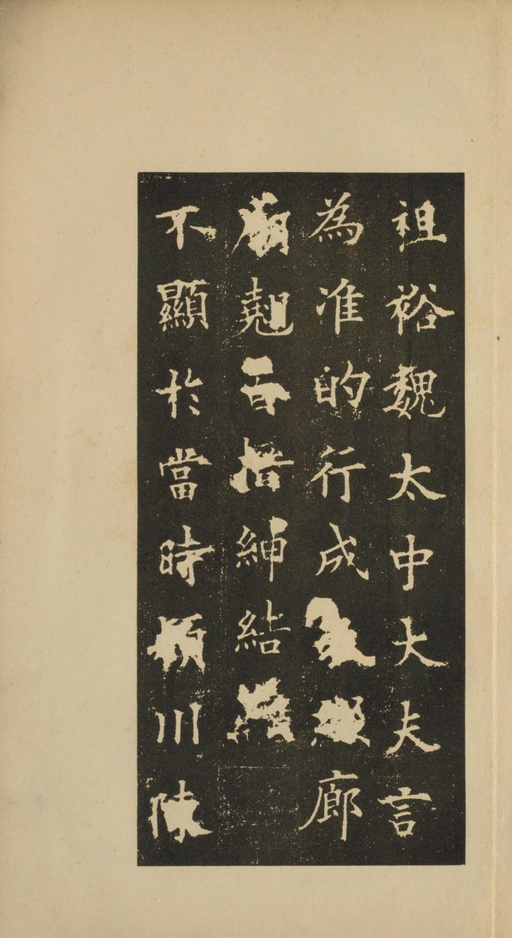 祖裕魏太中大夫言
為准的行成綴廊
廟搢紳結
不顯於當時潁川陳